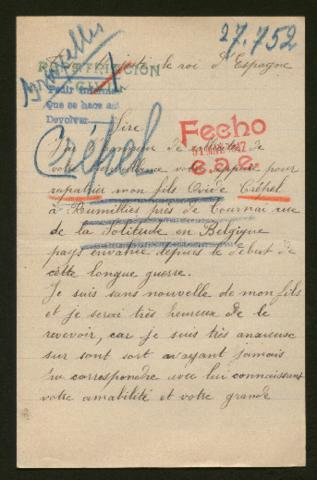 27.752
Bruxelles
Sa Majesté le roi d'Espagne
Pedir informe
Que se hace así
Devolver
Sire
Fecho
Créhel
J'ai l'honneur de solliciter de
votre bienveillance votre appui pour
rapatrier mon fils Ovide Créhel
à Rumillies près de Tournai rue
de la Solitude en Belgique
pays envahie depuis le début de
cette longue guerre.
Je suis sans nouvelle de mon fils
et je serai très heureux de le
revevoir, car je suis très anxieuse
sur sont sort n'ayant jamais
pu correspondre avec lui connaissant
votre amabilité et votre grande